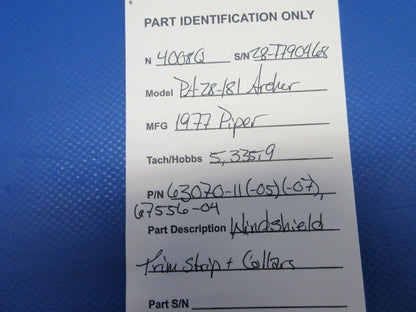 PART IDENTIFICATION ONLY
N 4008Q S/N 28-7790468
Model PA-28-181 Archer
MFG 1977 Piper
Tach/Hobbs 5,335.9
P/N 63070-11(-05)(-07),
67556-04
Part Description Windshield
Trim Strip + Collars
Part S/N